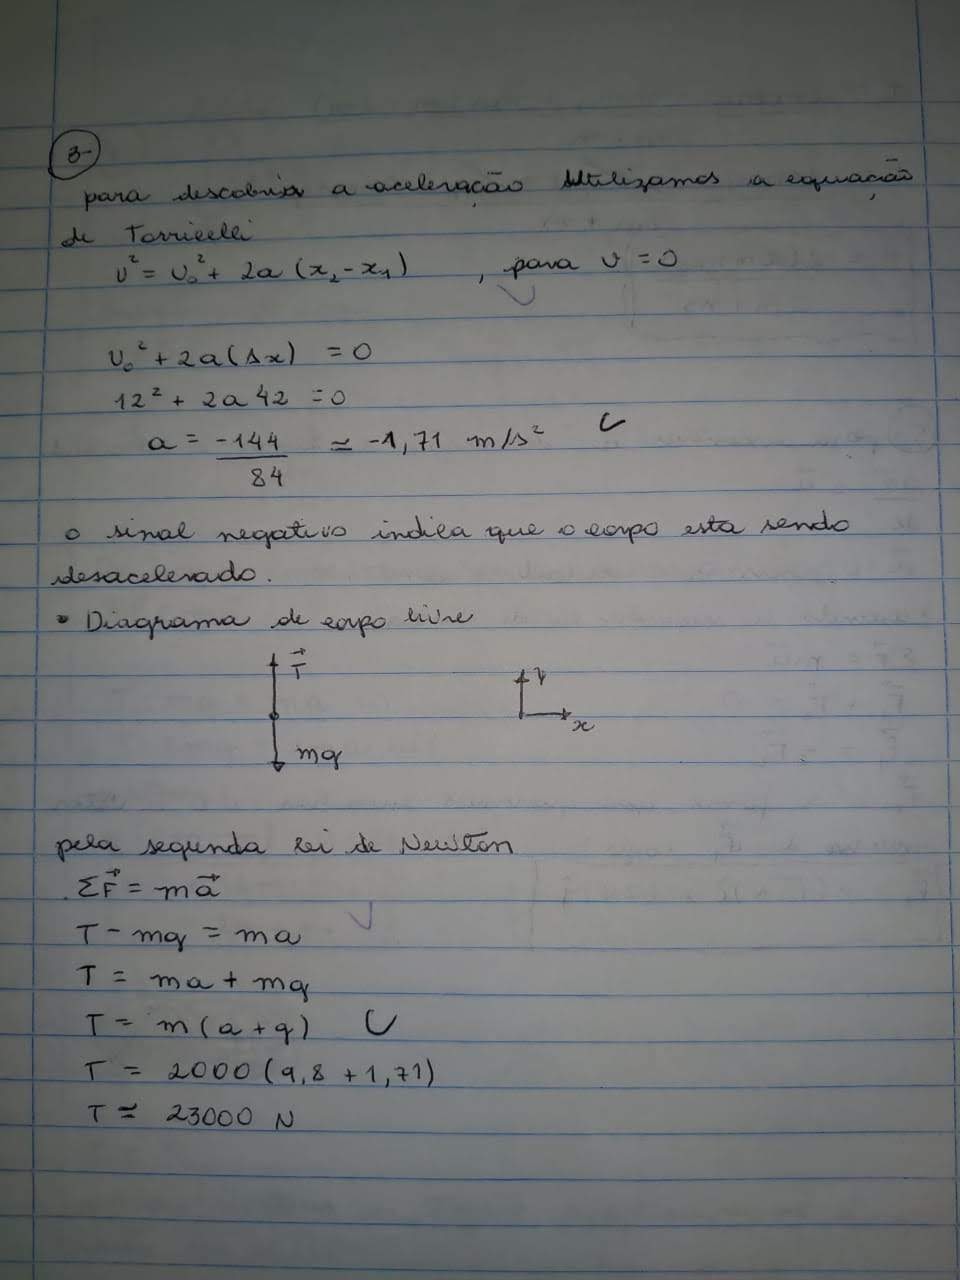 3-
para descobrir a aceleração utilizamos a equação
de Torricelli
v² = v₀² + 2a (x₂ - x₁) , para v = 0
v₀² + 2a (Δx) = 0
12² + 2a 42 = 0
a = -144/84 ≃ -1,71 m/s²
o sinal negativo indica que o corpo esta sendo
desacelerado.
• Diagrama de corpo livre
T⃗
y
x
mg
pela segunda Lei de Newton
ΣF⃗ = ma⃗
T - mg = ma
T = ma + mg
T = m (a + g)
T = 2000 (9,8 + 1,71)
T ≃ 23000 N